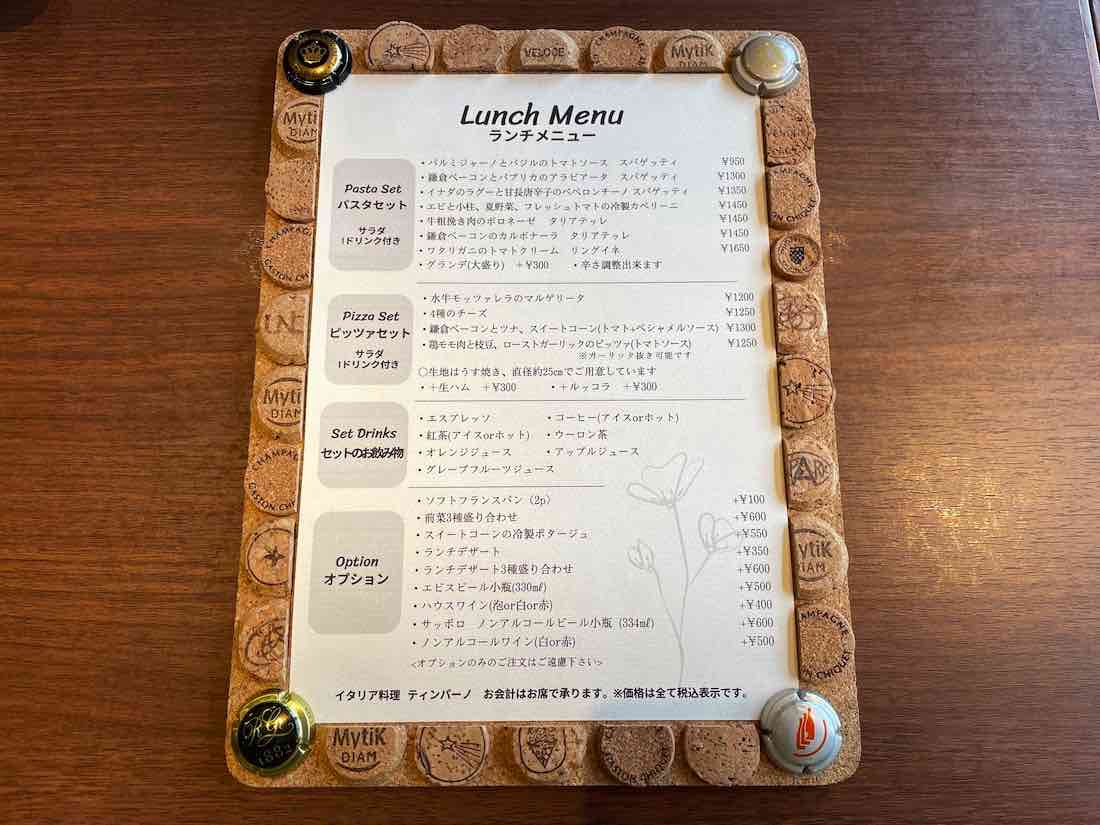 VELOCE
CHAMPAGNE
MytiK
DIAM
Lunch Menu
ランチメニュー
Pasta Set
パスタセット
サラダ
1ドリンク付き
・パルミジャーノとバジルのトマトソース　スパゲッティ　¥950
・鎌倉ベーコンとパプリカのアラビアータ　スパゲッティ　¥1300
・イナダのラグーと甘長唐辛子のペペロンチーノ スパゲッティ　¥1350
・エビと小柱、夏野菜、フレッシュトマトの冷製カペリーニ　¥1450
・牛粗挽き肉のボロネーゼ　タリアテッレ　¥1450
・鎌倉ベーコンのカルボナーラ　タリアテッレ　¥1450
・ワタリガニのトマトクリーム　リングイネ　¥1650
・グランデ(大盛り)　＋¥300　・辛さ調整出来ます
Pizza Set
ピッツァセット
サラダ
1ドリンク付き
・水牛モッツァレラのマルゲリータ　¥1200
・4種のチーズ　¥1250
・鎌倉ベーコンとツナ、スイートコーン(トマト+ベシャメルソース)　¥1300
・鶏モモ肉と枝豆、ローストガーリックのピッツァ(トマトソース)　¥1250
※ガーリック抜き可能です
〇生地はうす焼き、直径約25㎝でご用意しています
・＋生ハム　＋¥300　・＋ルッコラ　＋¥300
Set Drinks
セットのお飲み物
・エスプレッソ　・コーヒー(アイスorホット)
・紅茶(アイスorホット)　・ウーロン茶
・オレンジジュース　・アップルジュース
・グレープフルーツジュース
Option
オプション
・ソフトフランスパン（2p）　+¥100
・前菜3種盛り合わせ　+¥600
・スイートコーンの冷製ポタージュ　+¥550
・ランチデザート　+¥350
・ランチデザート3種盛り合わせ　+¥600
・エビスビール小瓶(330㎖)　+¥500
・ハウスワイン(泡or白or赤)　+¥400
・サッポロ　ノンアルコールビール小瓶（334㎖)　+¥600
・ノンアルコールワイン(白or赤)　+¥500
<オプションのみのご注文はご遠慮下さい>
イタリア料理　ティンパーノ　お会計はお席で承ります。※価格は全て税込表示です。
MytiK
DIAM